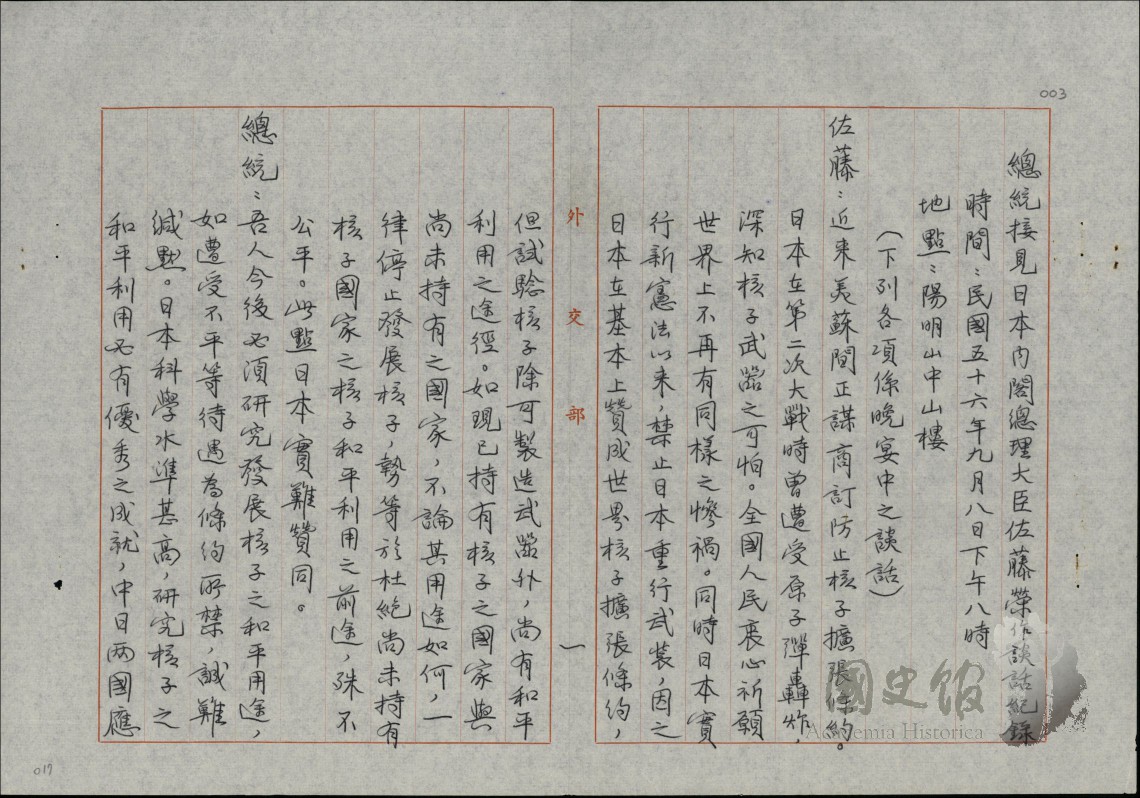 003
總統接見日本內閣總理大臣佐藤榮作談話紀錄
時間：民國五十六年九月八日下午八時
地點：陽明山中山樓
（下列各項係晚宴中之談話）
佐藤：近来美蘇間正謀商訂防止核子擴張條約。
日本在第二次大戰時曾遭受原子彈轟炸，
深知核子武器之可怕。全國人民衷心祈願
世界上不再有同樣之慘禍。同時日本實
行新憲法以来，禁止日本重行武裝，因之
日本在基本上贊成世界核子擴張條約，
外交部
一
但試驗核子除可製造武器外，尚有和平
利用之途徑。如現已持有核子之國家與
尚未持有之國家，不論其用途如何，一
律停止發展核子，勢等於杜絕尚未持有
核子國家之核子和平利用之前途，殊不
公平。此點日本實難贊同。
總統：吾人今後必須研究發展核子之和平用途，
如遭受不平等待遇為條約所禁，誠難
緘默。日本科學水準甚高，研究核子之
和平利用必有優秀之成就，中日两國應
017
國史館
Academia Historica